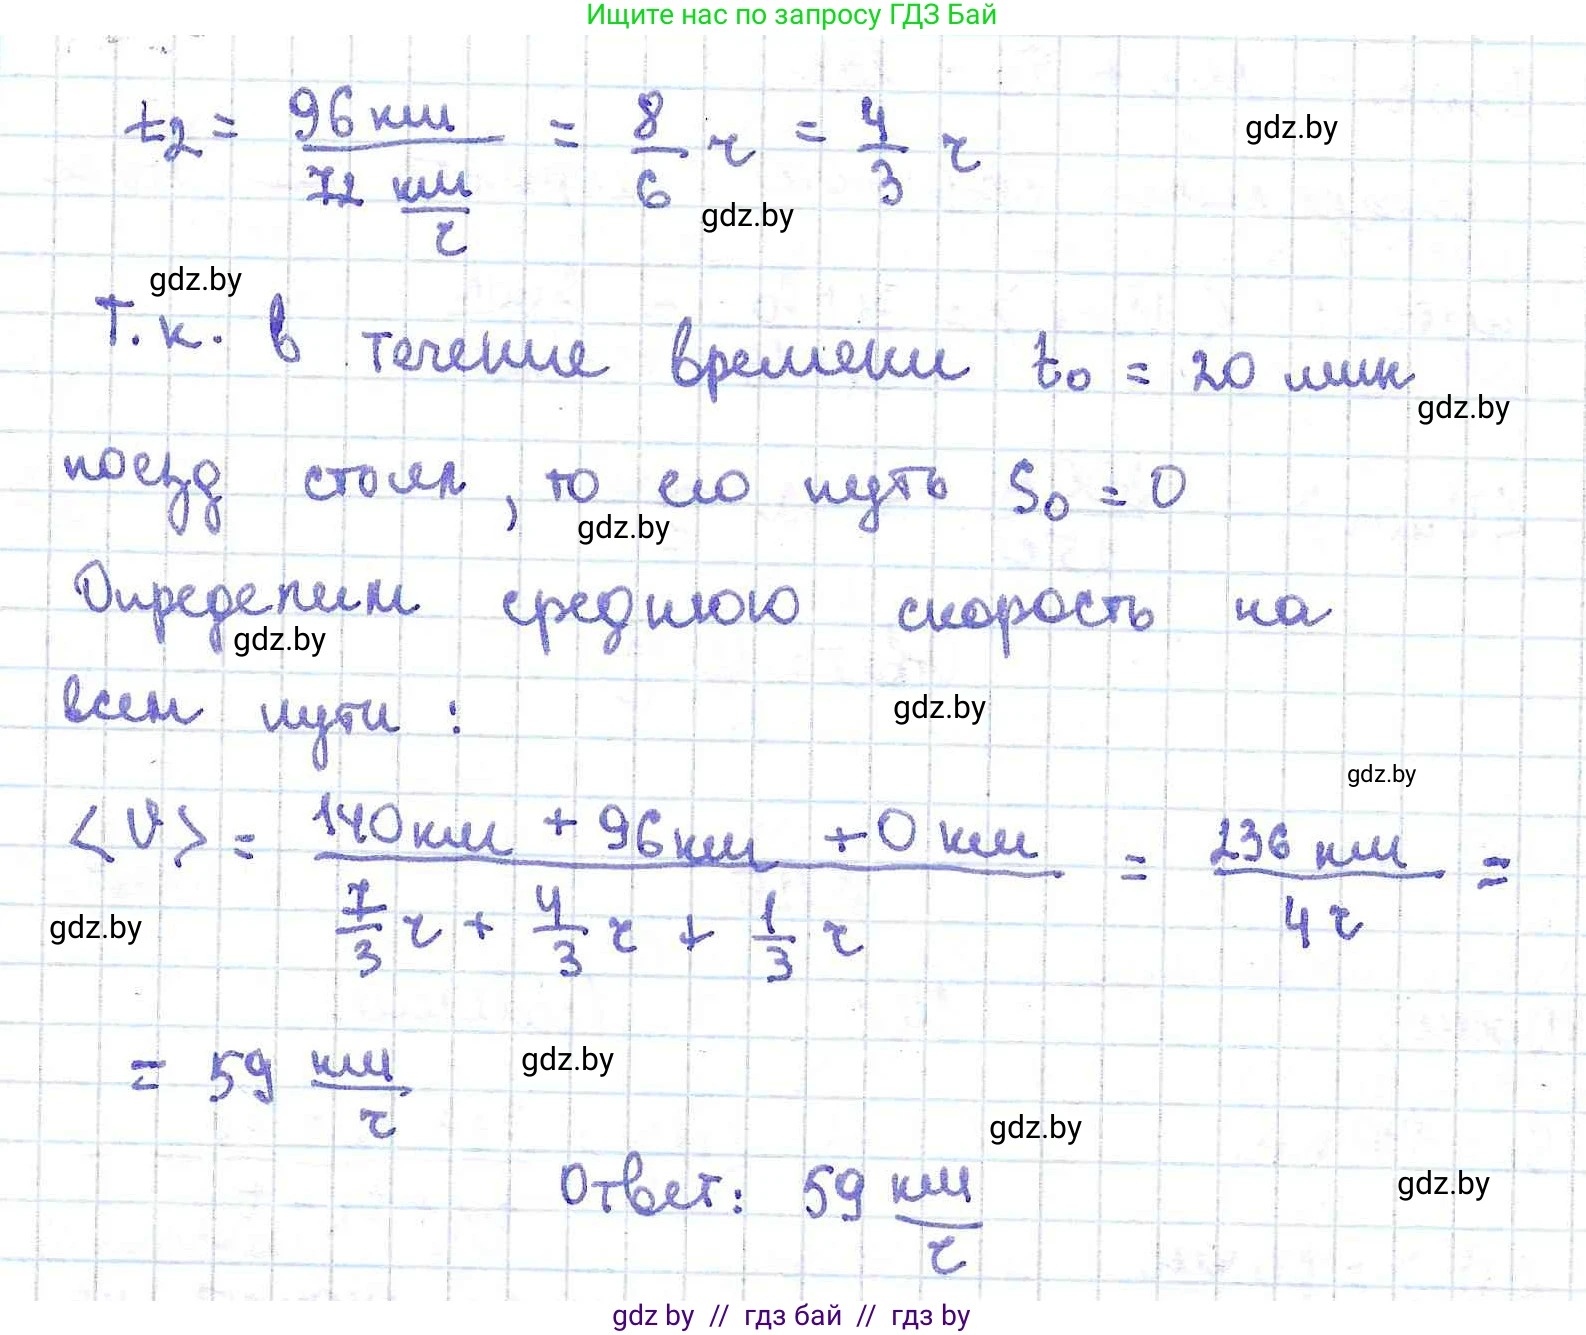 Ищите нас по запросу ГДЗ Бай
t₂ = 96 км / 72 км/ч = 8/6 ч = 4/3 ч
gdz.by
gdz.by
gdz.by
Т.к. в течение времени t₀ = 20 мин
gdz.by
поезд стоял, то его путь S₀ = 0
gdz.by
Определим среднюю скорость на
gdz.by
всем пути:
gdz.by
gdz.by
<v> = 140 км + 96 км + 0 км / 7/3 ч + 4/3 ч + 1/3 ч = 236 км / 4 ч =
gdz.by
= 59 км/ч
gdz.by
gdz.by
Ответ: 59 км/ч
gdz.by
gdz.by // гдз бай // гдз by